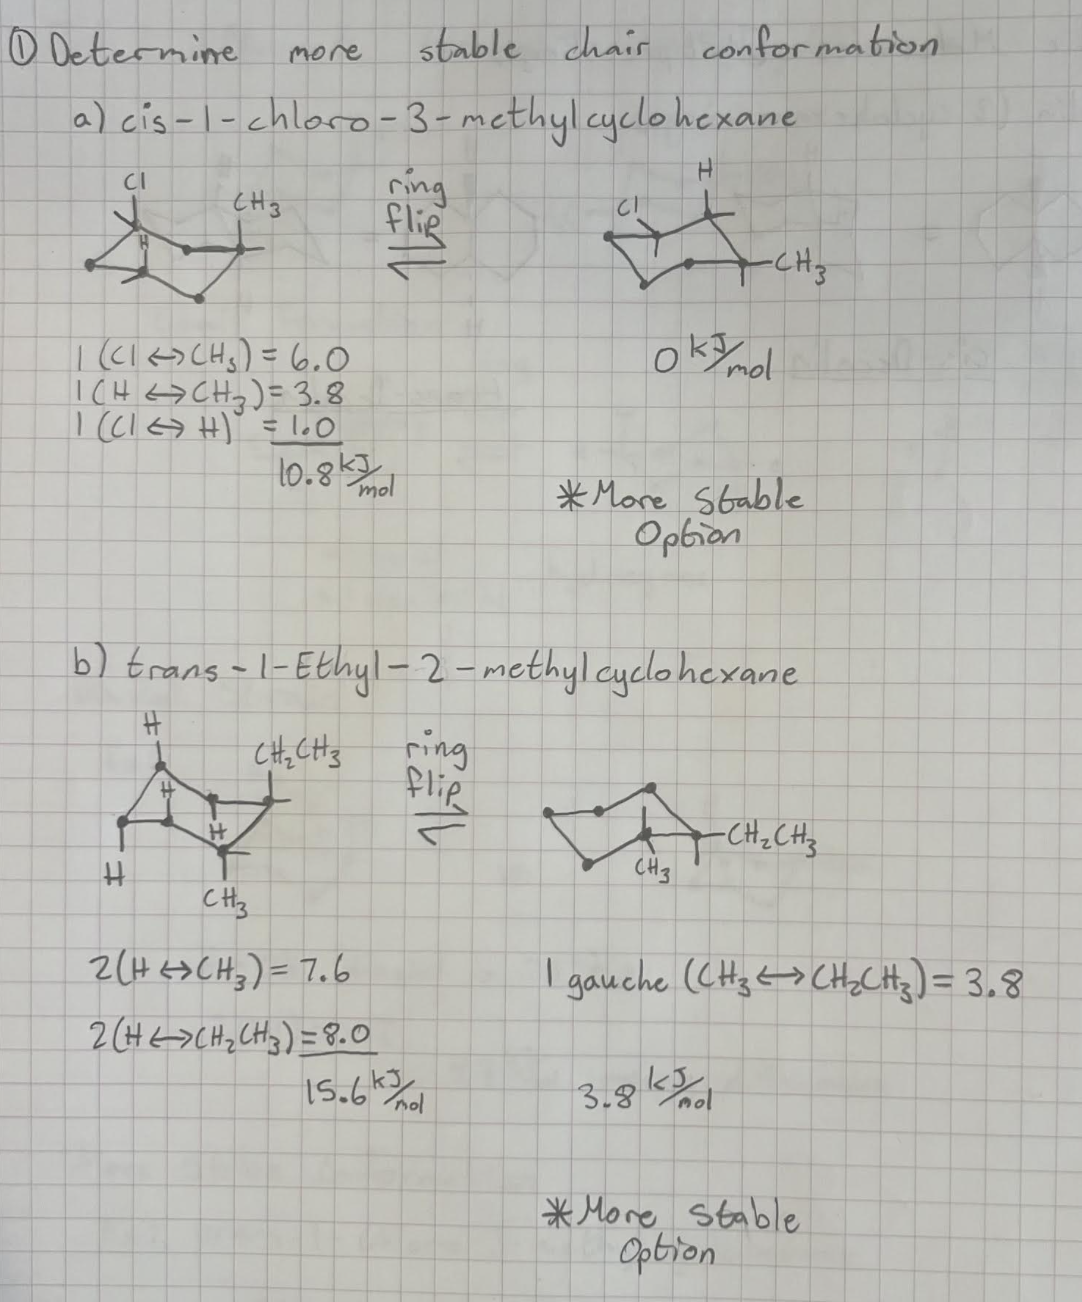 ① Determine more stable chair conformation
a) cis-1-chloro-3-methylcyclohexane
Cl
CH₃
H
ring
flip
H
Cl
CH₃
1 (Cl ↔ CH₃) = 6.0
1 (H ↔ CH₃) = 3.8
1 (Cl ↔ H) = 1.0
10.8 kJ/mol
0 kJ/mol
*More Stable
Option
b) trans-1-Ethyl-2-methylcyclohexane
H
CH₂CH₃
H
H
H
CH₃
ring
flip
CH₂CH₃
CH₃
2(H ↔ CH₃) = 7.6
2(H ↔ CH₂CH₃) = 8.0
15.6 kJ/mol
1 gauche (CH₃ ↔ CH₂CH₃) = 3.8
3.8 kJ/mol
*More Stable
Option